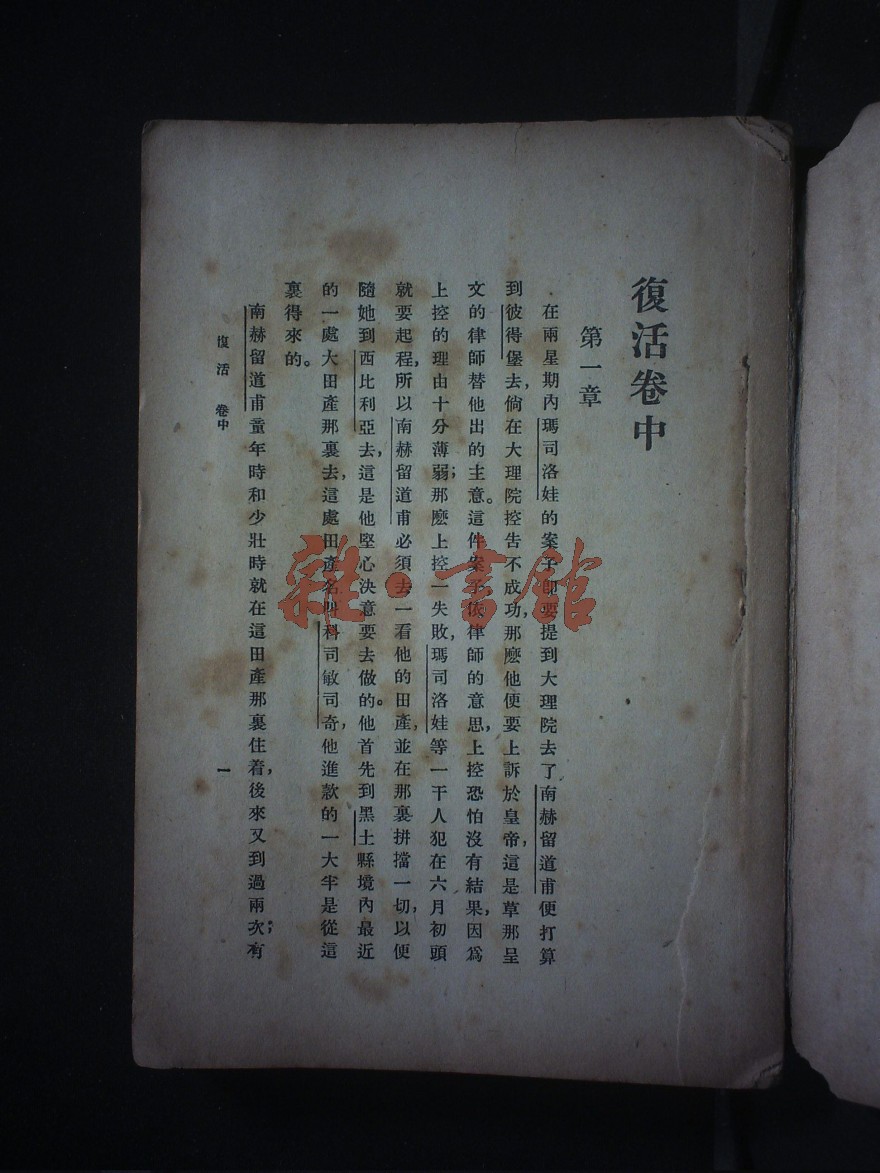 復活卷中
第一章
在兩星期內瑪司洛娃的案子即要提到大理院去了南赫留道甫便打算
到彼得堡去,倘在大理院控告不成功,那麽他便要上訴於皇帝,這是草那呈
文的律師替他出的主意。這件案子依律師的意思,上控恐怕沒有結果,因爲
上控的理由十分薄弱;那麽上控一失敗,瑪司洛娃等一干人犯在六月初頭
就要起程,所以南赫留道甫必須去一看他的田產,並在那裏拼擋一切,以便
隨她到西比利亞去,這是他堅心決意要去做的。他首先到黑土縣境內最近
的一處大田產那裏去,這處田產名叫科司敏司奇,他進款的一大半是從這
裏得來的。
南赫留道甫童年時和少壯時就在這田產那裏住着,後來又到過兩次;有
復活 卷中
一
雜·書館